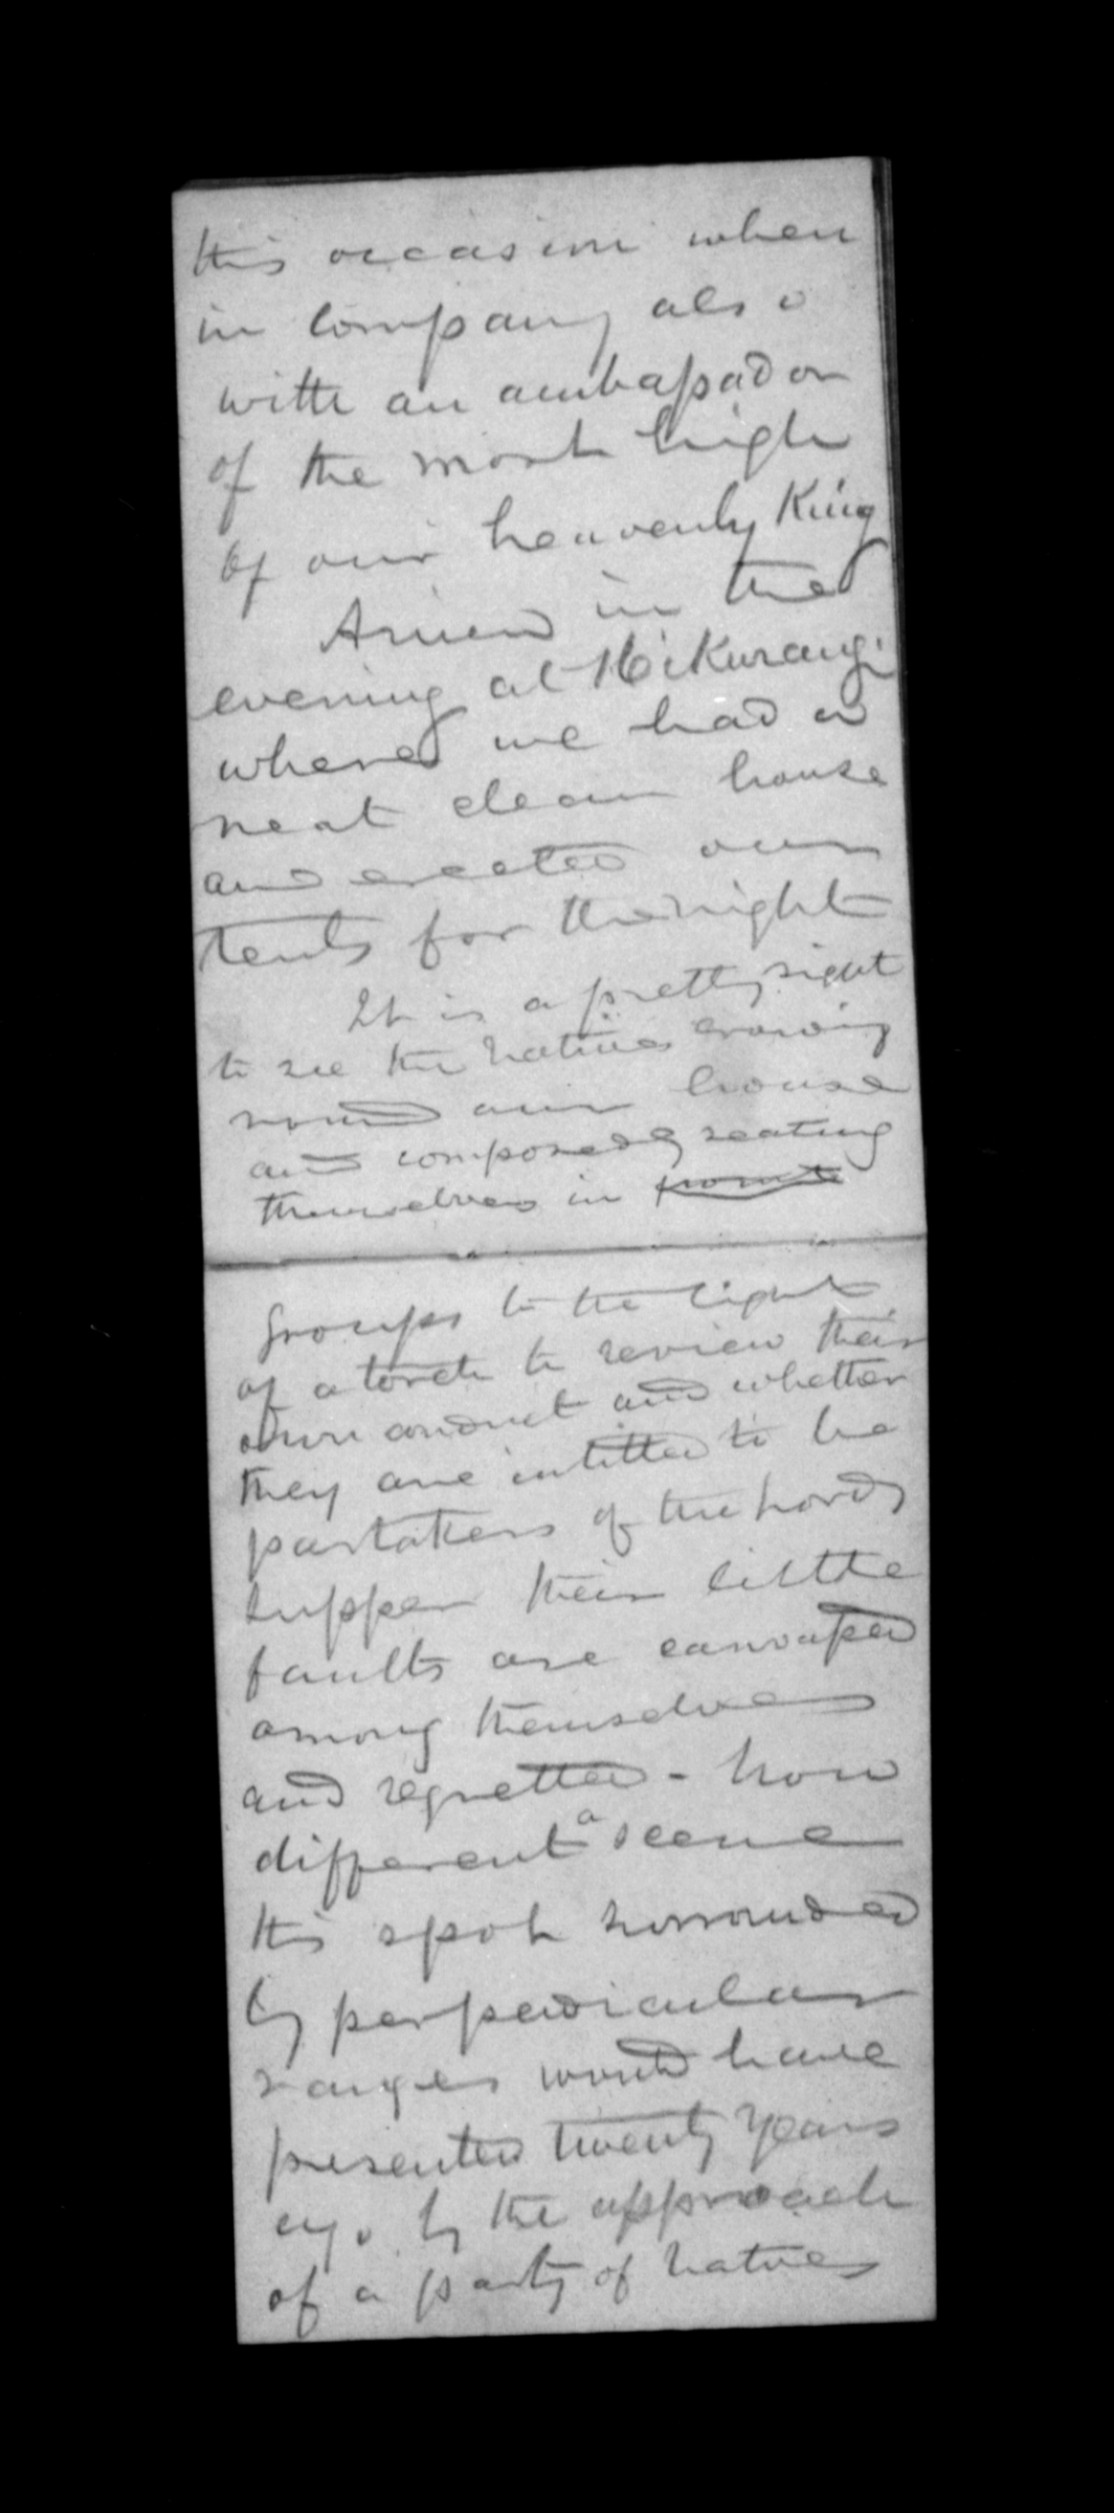 this occasion when
in company also
with an ambassador
of the most high
of our heavenly King
Arrived in the
evening at Hikurangi
where we had a
neat clean house
and erected our
tents for the night
It is a pretty sight
to see the natives
round our house
and composedly seating
themselves in
groups to the light
of a torch to review their
own conduct and whether
they are intitled to be
partakers of the Lords
supper their little
faults are canvassed
among themselves
and regretted - how
different a scene
this spot surrounded
by perpedicular
ranges would have
presented twenty years
ago by the approach
of a party of natives